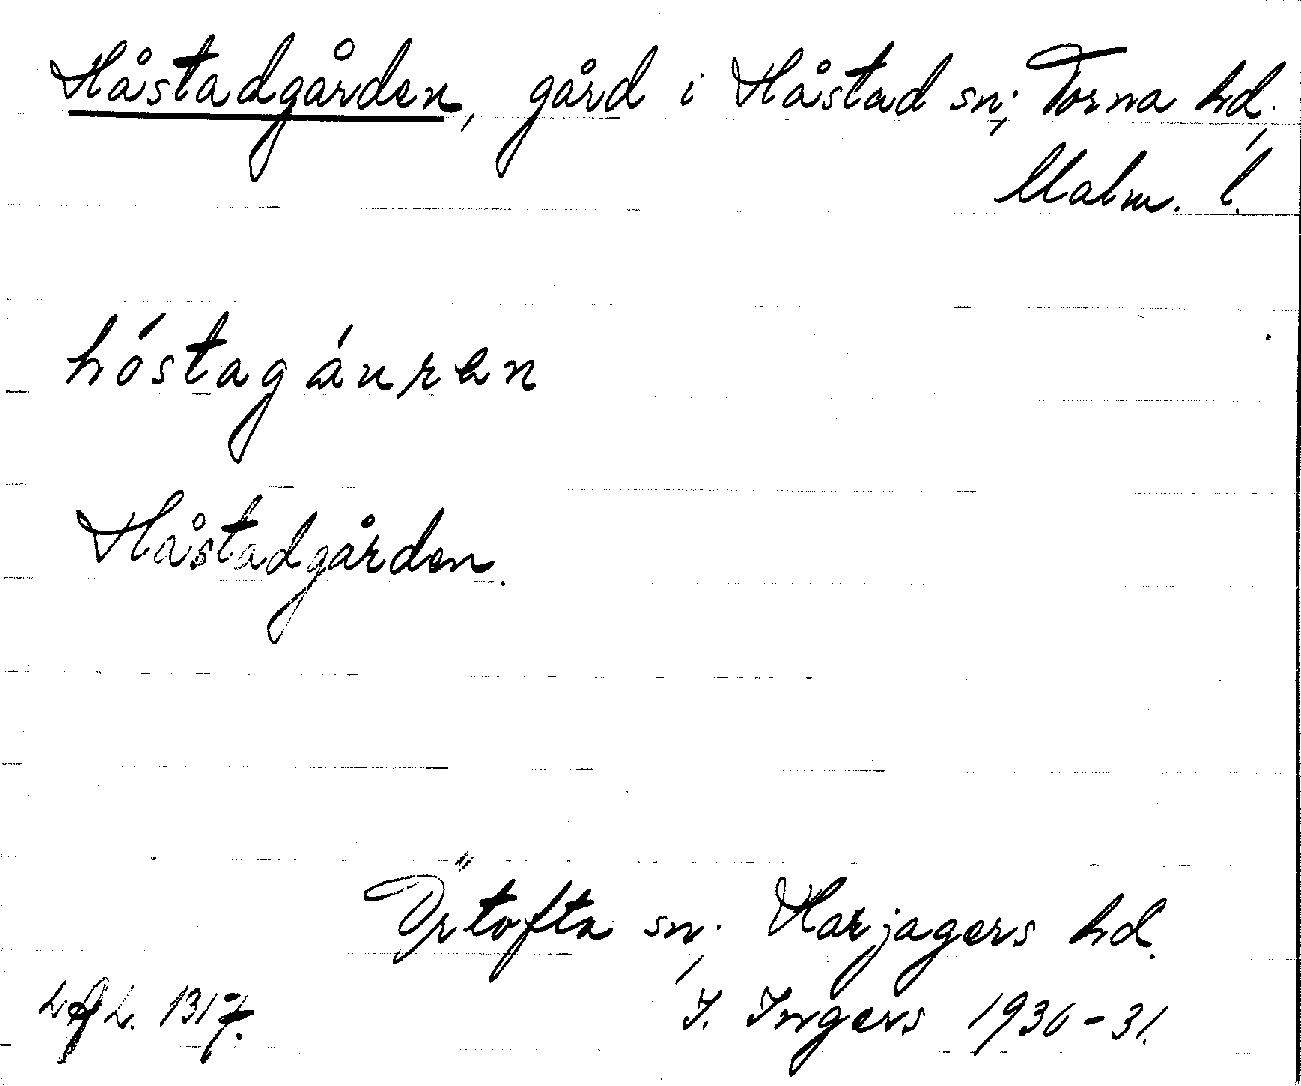 Håstadgården, gård i Håstad sn, Torna hd,
Malm. l.
hóstagáuren
Håstadgården.
Örtofta sn, Harjagers hd.
I. Ingers 1930-31.